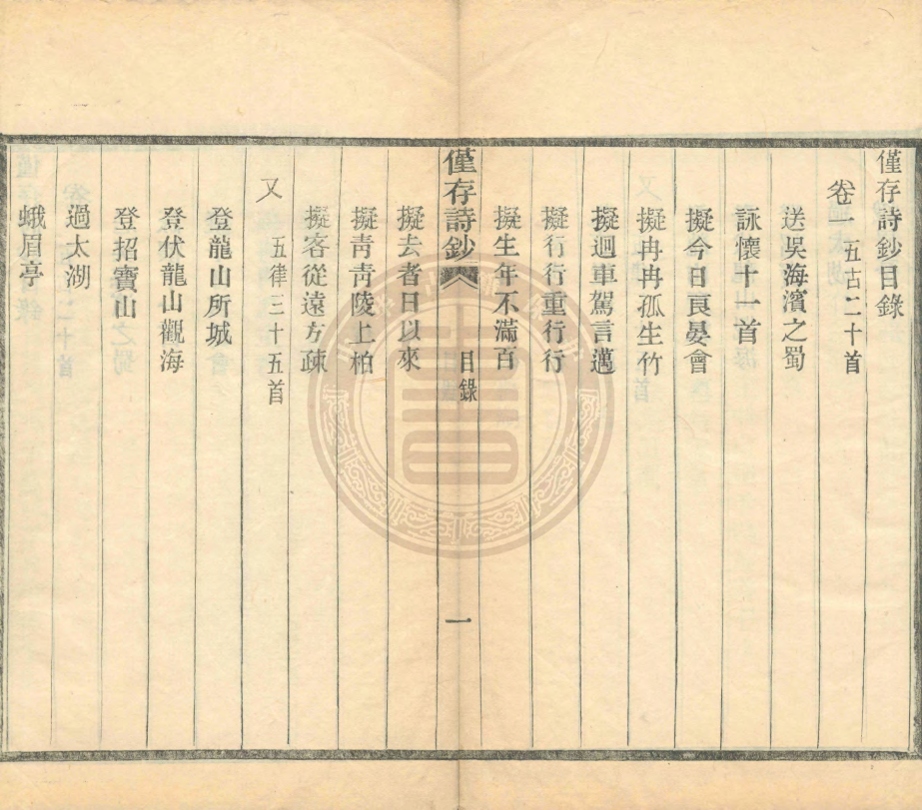 僅存詩鈔目錄
卷一 五古二十首
送吳海濱之蜀
詠懷十一首
擬今日良晏會
擬冉冉孤生竹
擬迴車駕言邁
擬行行重行行
擬生年不滿百
僅存詩鈔 目錄 一
擬去者日以來
擬靑靑陵上柏
擬客從遠方疎
又 五律三十五首
登龍山所城
登伏龍山觀海
登招寶山
過太湖
蛾眉亭